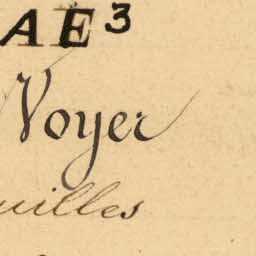 AE³
Voyer
uilles